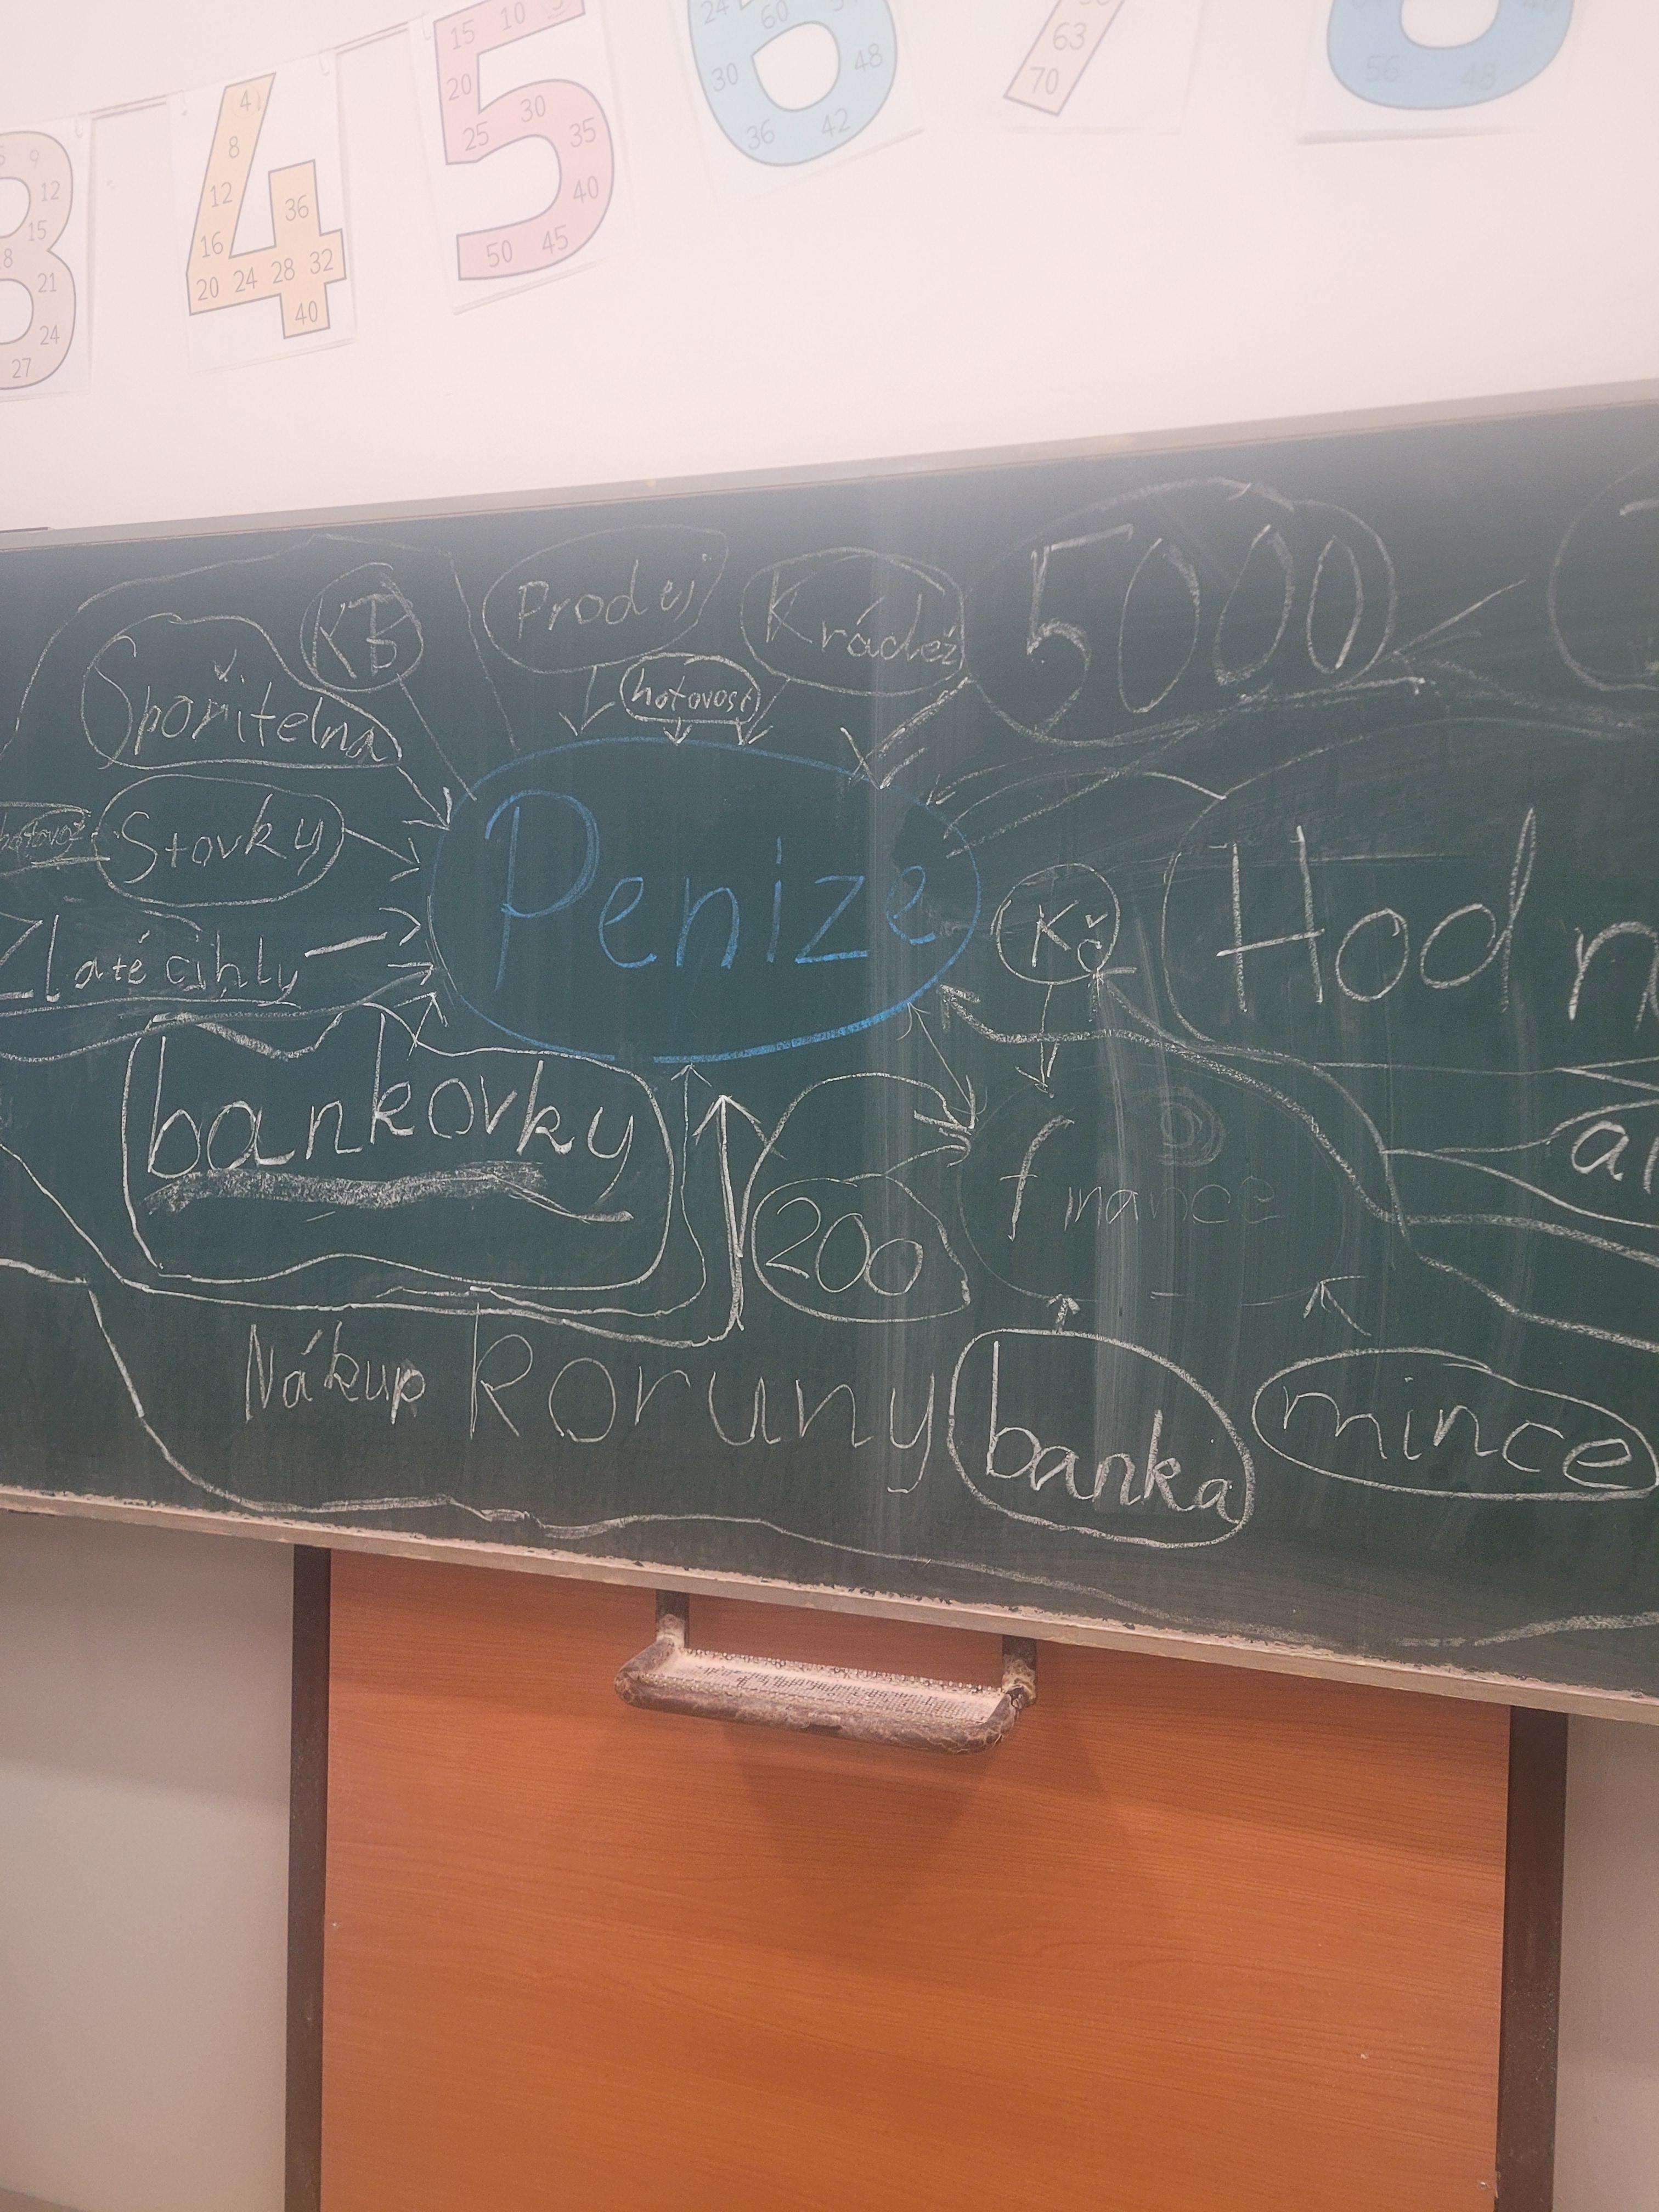 15 10 5
24 60
63
20
30
48
70
56 48
4
30
25
35
36
42
8
9
12
12
40
15
36
16
50 45
18
20 24 28 32
21
40
24
27
KB
Prodej
Krádež
5000
Spořitelna
hotovost
Stovky
Penize
Kč
Hodn
Zlaté cihly
bankovky
finance
200
Nákup
Koruny
banka
mince